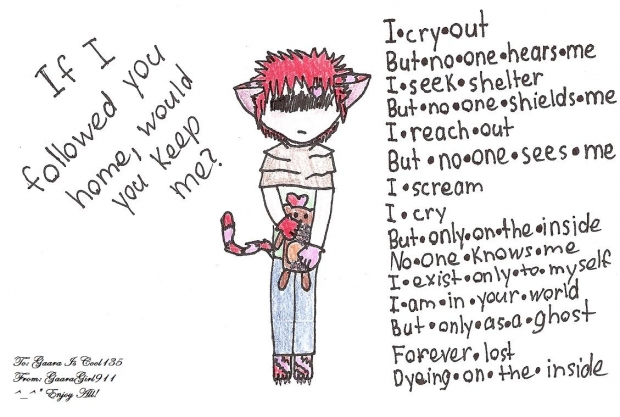 If I
followed you
home, would
you keep
me?
I•cry•out
But•no•one•hears•me
I•seek•shelter
But•no•one•shields•me
I•reach•out
But•no•one•sees•me
I•scream
I•cry
But•only•on•the•inside
No•one•knows•me
I•exist•only•to•myself
I•am•in•your•world
But•only•as•a•ghost
Forever•lost
Dyeing•on•the•inside
To: Gaara Is Cool135
From: GaaraGirl911
^_^* Enjoy All!